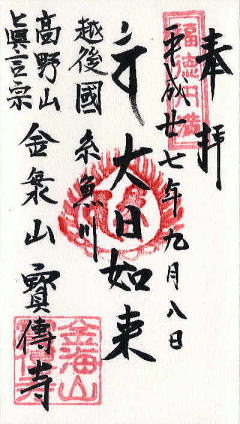 奉拝
平成廿七年九月八日
大日如来
越後國 糸魚川
高野山
眞言宗
金海山 寳傳寺
福徳円満
金海山
寳傳寺